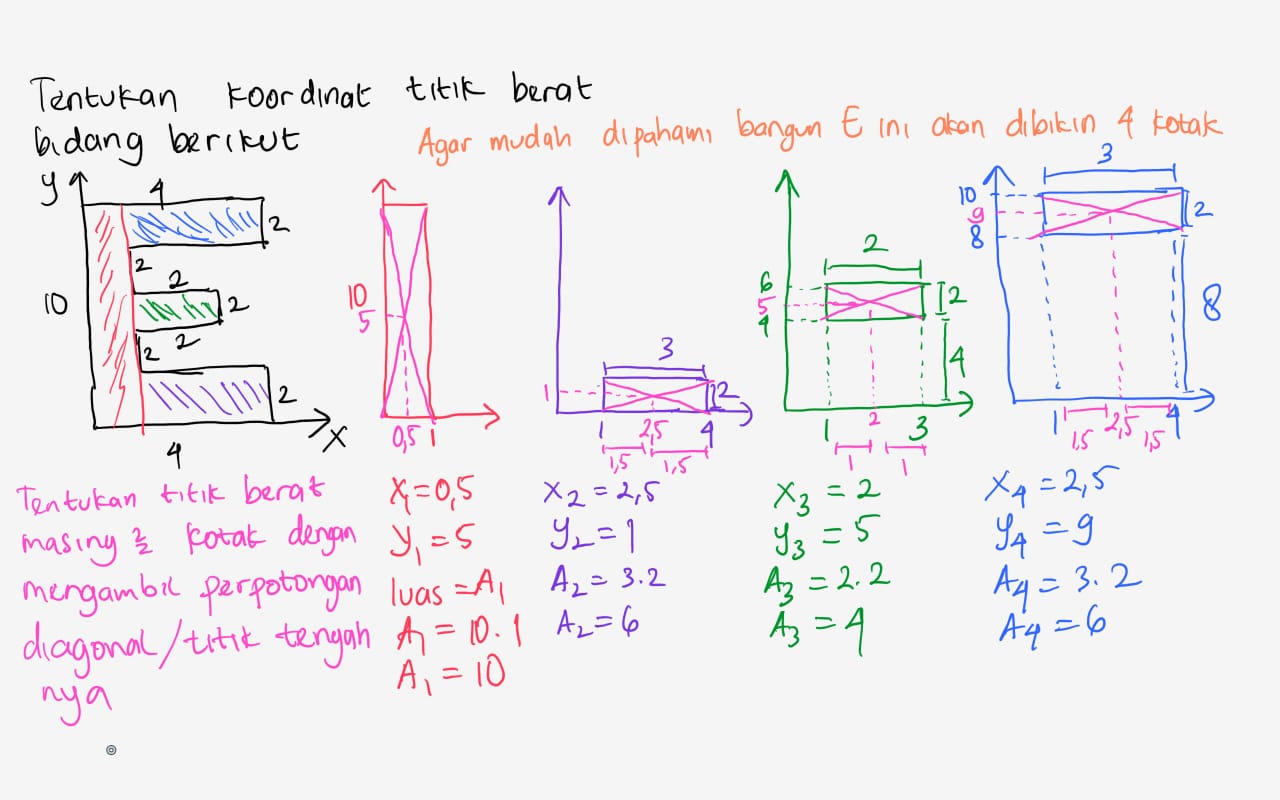 Tentukan koordinat titik berat
bidang berikut
Agar mudah dipahami bangun E ini akan dibikin 4 kotak
y
4
2
2
2
10
2
2
2
2
4
x
10
5
0,5 1
3
1
2
1 2,5 4
1,5 1,5
2
6
5
4
2
4
1 2 3
1 1
3
10
9
8
2
8
1 2,5 4
1,5 1,5
Tentukan titik berat
masing 2/2 kotak dengan
mengambil perpotongan
diagonal/titik tengah
nya
X1=0,5
y1=5
luas=A1
A1=10.1
A1=10
X2=2,5
y2=1
A2=3.2
A2=6
X3=2
y3=5
A3=2.2
A3=4
X4=2,5
y4=9
A4=3.2
A4=6